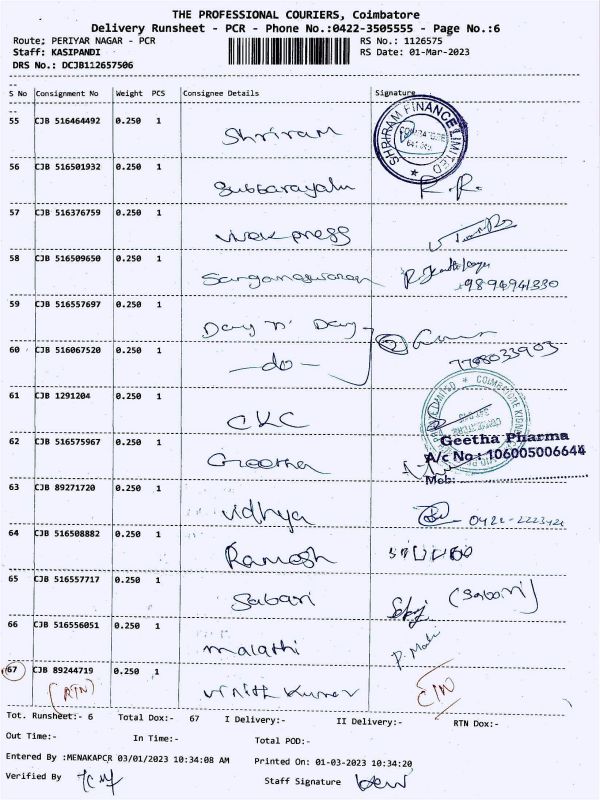 THE PROFESSIONAL COURIERS, Coimbatore
Delivery Runsheet - PCR - Phone No.:0422-3505555 - Page No.:6
Route; PERIYAR NAGAR - PCR
RS No.: 1126575
Staff: KASIPANDI
RS Date: 01-Mar-2023
DRS No.: DCJB112657506
S No Consignment No Weight PCS Consignee Details Signature
55 CJB 516464492 0.250 1 Shriram
SHRIRAM FINANCE LIMITED
56 CJB 516501932 0.250 1 Subbarayalu R.R.
57 CJB 516376759 0.250 1 Vivek press
58 CJB 516509650 0.250 1
59 CJB 516557697 0.250 1 Day n' Day
60 CJB 516067520 0.250 1 -do- 7708033903
61 CJB 1291204 0.250 1 CKC
Geetha Pharma
A/c No : 106005006644
Mob:
62 CJB 516575967 0.250 1 Geetha
63 CJB 89271720 0.250 1 Vidhya
64 CJB 516508882 0.250 1 Ramesh
65 CJB 516557717 0.250 1 Sabari (Sabari)
66 CJB 516556051 0.250 1 malathi
67 CJB 89244719 0.250 1 Vinith Kumar
(RTN)
Tot. Runsheet:- 6 Total Dox:- 67 I Delivery:- II Delivery:- RTN Dox:-
Out Time:- In Time:- Total POD:-
Entered By :MENAKAPCR 03/01/2023 10:34:08 AM Printed On: 01-03-2023 10:34:20
Verified By Staff Signature